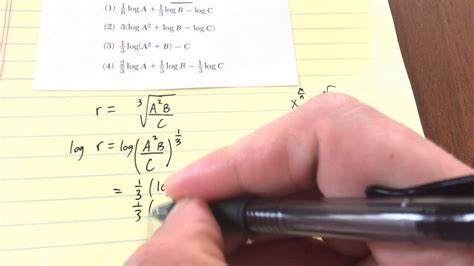 (1) 1/6 log A + 1/3 log B − log C
(2) 3(log A² + log B − log C)
(3) 1/3 log(A² + B) − C
(4) 2/3 log A + 1/3 log B − 1/3 log C
r = ∛(A²B/C)
log r = log(A²B/C)^(1/3)
= 1/3 (
1/3 (